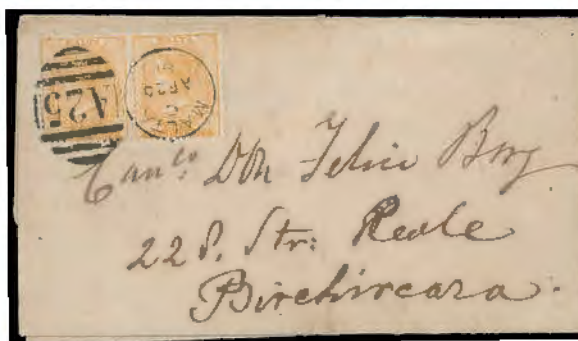 A25
MALTA
C
AP 25
Can.co Don Felice Borg
228. Str: Reale
Birchircara.